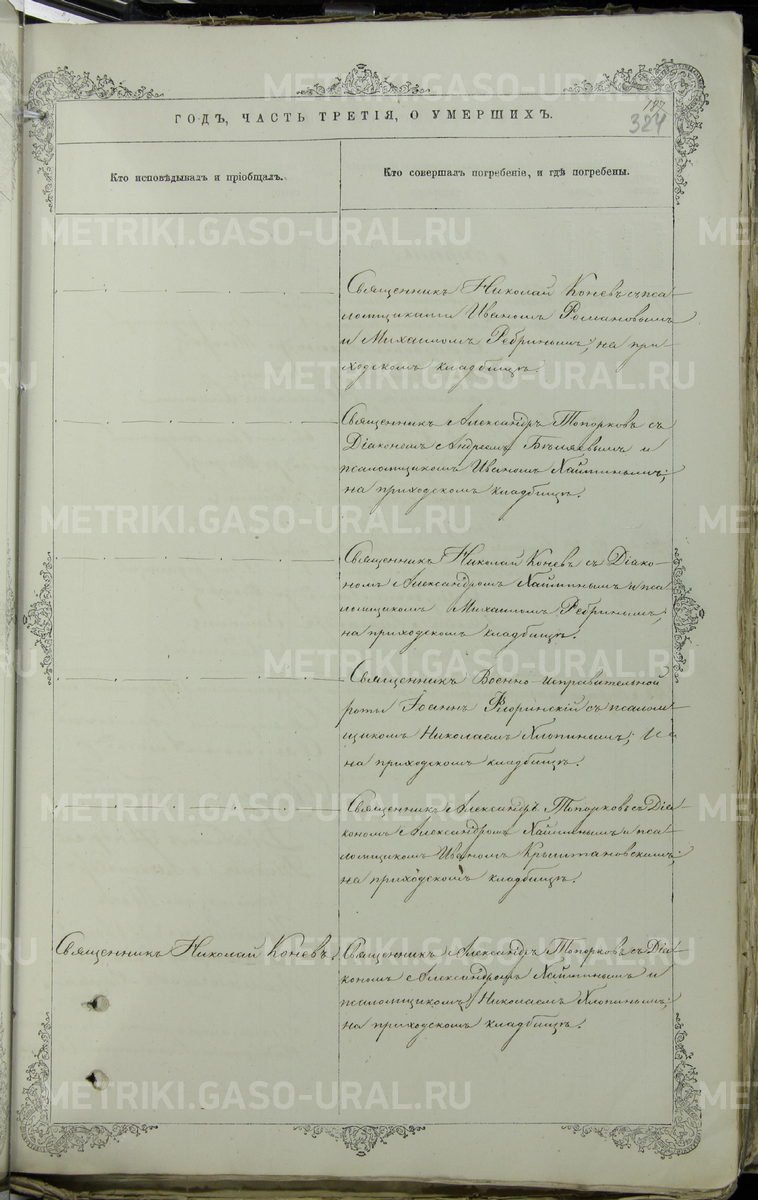 METRIKI.GASO-URAL.RU
ГОДЪ, ЧАСТЬ ТРЕТІЯ, О УМЕРШИХЪ.
324
Кто исповѣдывалъ и пріобщалъ.
Кто совершалъ погребеніе, и гдѣ погребены.
Священникъ Николай Коневъ съ пса-
ломщиками Иваномъ Романовымъ
и Михаиломъ Ребринымъ; на при-
ходскомъ кладбищѣ.
Священникъ Александръ Топорковъ съ
Діакономъ Андреемъ Бѣляевымъ и
псаломщикомъ Иваномъ Хайминымъ;
на приходскомъ кладбищѣ.
Священникъ Николай Коневъ съ Діако-
номъ Александромъ Хайминымъ и пса-
ломщикомъ Михаиломъ Ребринымъ;
на приходскомъ кладбищѣ.
Священникъ Военно-Исправительной
роты Іоаннъ Флоринскій съ псалом-
щикомъ Николаемъ Хлопинымъ;
на приходскомъ кладбищѣ.
Священникъ Александръ Топорковъ съ Діа-
кономъ Александромъ Хайминымъ и пса-
ломщикомъ Иваномъ Крыштановскимъ;
на приходскомъ кладбищѣ.
Священникъ Николай Коневъ.
Священникъ Александръ Топорковъ съ Діа-
кономъ Александромъ Хайминымъ и
псаломщикомъ Николаемъ Хлопинымъ;
на приходскомъ кладбищѣ.